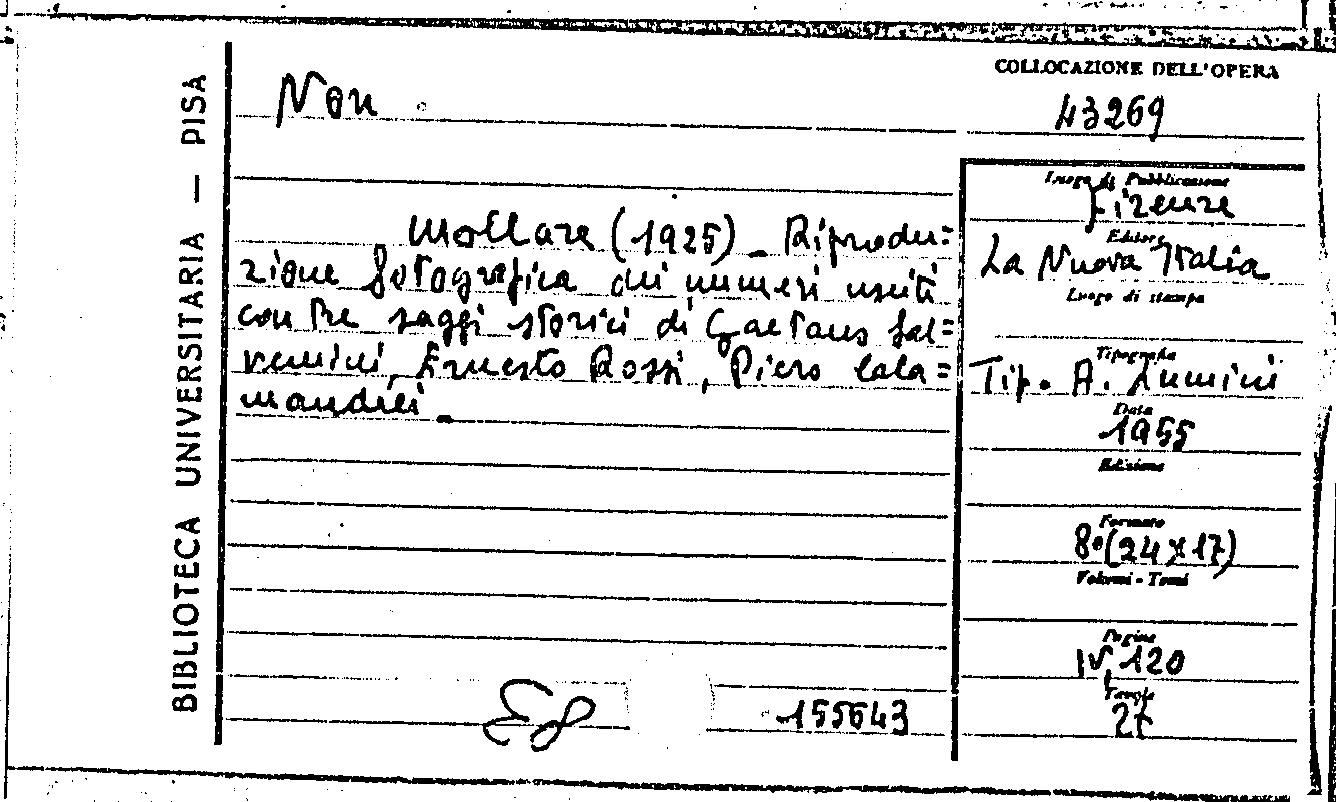 BIBLIOTECA UNIVERSITARIA — PISA
Non
COLLOCAZIONE DELL'OPERA
43269
Mollare (1925)_ Riprodu=
zione fotografica dei numeri usciti
con tre saggi storici di Gaetano Sal=
vemini, Ernesto Rossi, Piero Cala=
mandrei_
155643
Luogo di Pubblicazione
Firenze
Editore
La Nuova Italia
Luogo di stampa
Tipografia
Tip. A. Lumini
Data
1955
Edizione
Formato
8°(24x17)
Volumi - Tomi
Pagine
IV, 120
Tavole
27